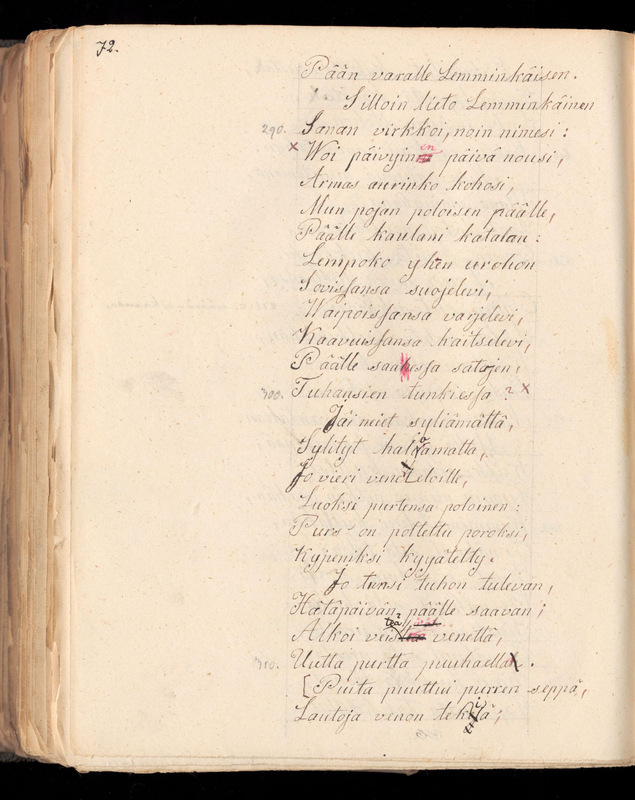 72.
Pään varalle Lemminkäisen.
Silloin lieto Lemminkäinen
290. Sanan virkkoi, noin nimesi:
x Woi päivyinen päivä nousi,
Armas aurinko kohosi,
Mun pojan poloisen päälle,
Päälle kaulani katalan:
Lempoko yhen urohon
Sovissansa suojelevi,
Waipoissansa varjelevi,
Kaavuissansa kaitselevi,
Päälle saahessa satojen,
300. Tuhansien tunkiessa? x
Jäi neiet syliämättä,
Sylityt halajamatta,
Jo vieri veneteloille,
Luoksi purtensa poloinen:
Purs' on poltettu poroksi,
Kypeniksi kyyätetty.
Jo tunsi tuhon tulevan,
Hätäpäivän päälle saavan;
Alkoi veisteä venettä,
310. Uutta purtta puuhaella.
[Puita puuttui purren seppä,
Lautoja venon tekijä;